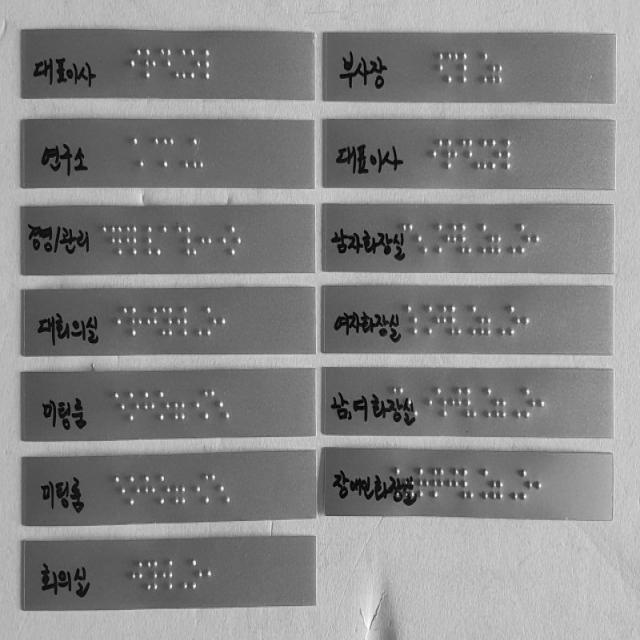 대표이사
연구소
경영/관리
대회의실
미팅룸
미팅룸
회의실
부사장
대표이사
남자화장실
여자화장실
남,여화장실
장애인화장실